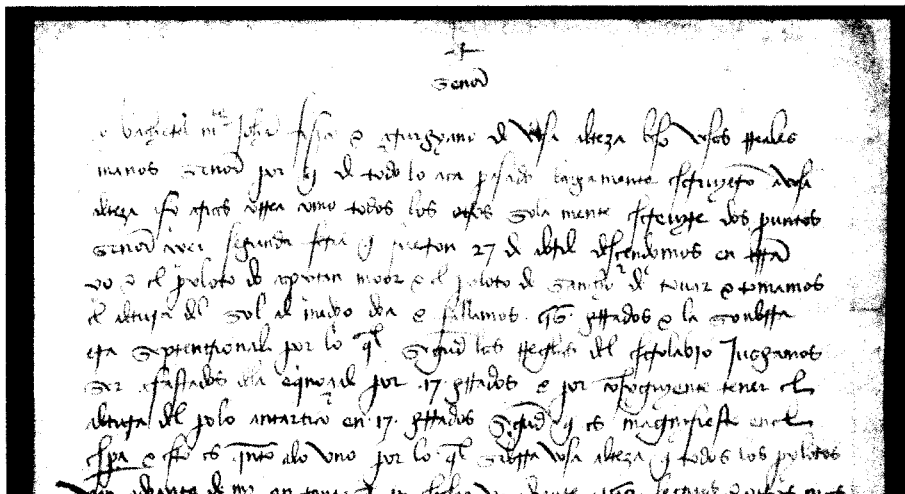 señor
o bacherel mre Johan fisico e çirurgyano de vosa alteza beso vosas reales
manos señor por q de todo lo aca pasado largamente escrivieron a vosa
alteza asy arias correa como todos los otros sola mente escrevire dos puntos
señor ayer segunda feria q fueron 27 de abril descendimos en terra
yo e el pyloto do capytan moor e el pyloto de sancho de tovar e tomamos
el altura del sol al medio dia e fallamos 56 grados e la sonbra
era septentrional por lo ql segund las reglas del estrolabio jusgamos
ser afastados de la equinocial por 17 grados e por consyguyente tener el
altura del polo antartico en 17 grados segund q es magnifiesto en el
espera e esto es quanto a lo uno por lo ql sabra vosa alteza q todos los pylotos
van adiante de mi en tanto q